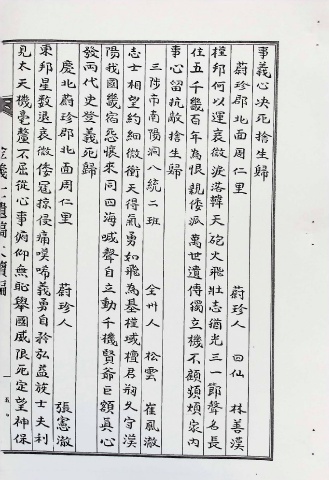 事義心決死捨生歸
蔚珍郡北面周仁里 蔚珍人 四仙 林善漢
槿邦何以運衰微淚落韓天砲火飛壯志猶光三一節聲名長
住五千幾百年為恨親倭派萬世遺傳獨立機不顧頻煩家內
事心留抗敵捨生歸
三陟市南陽洞八統二班 全州人 松雲 崔鳳澈
志士相望約細微衝天得氣勇如飛為基槿域檀君朔久守漢
陽我國畿宿怨懷來同四海喊聲自立動千機賢爺巨額真心
發兩代史登義死歸
慶北蔚珍郡北面周仁里 蔚珍人 張憲澈
東邦星數退衰微倭寇掠侵痛嘆啼義勇自矜弘益族士夫利
見太天機毫釐不屈從心事俯仰無恥舉國威限死定望神保